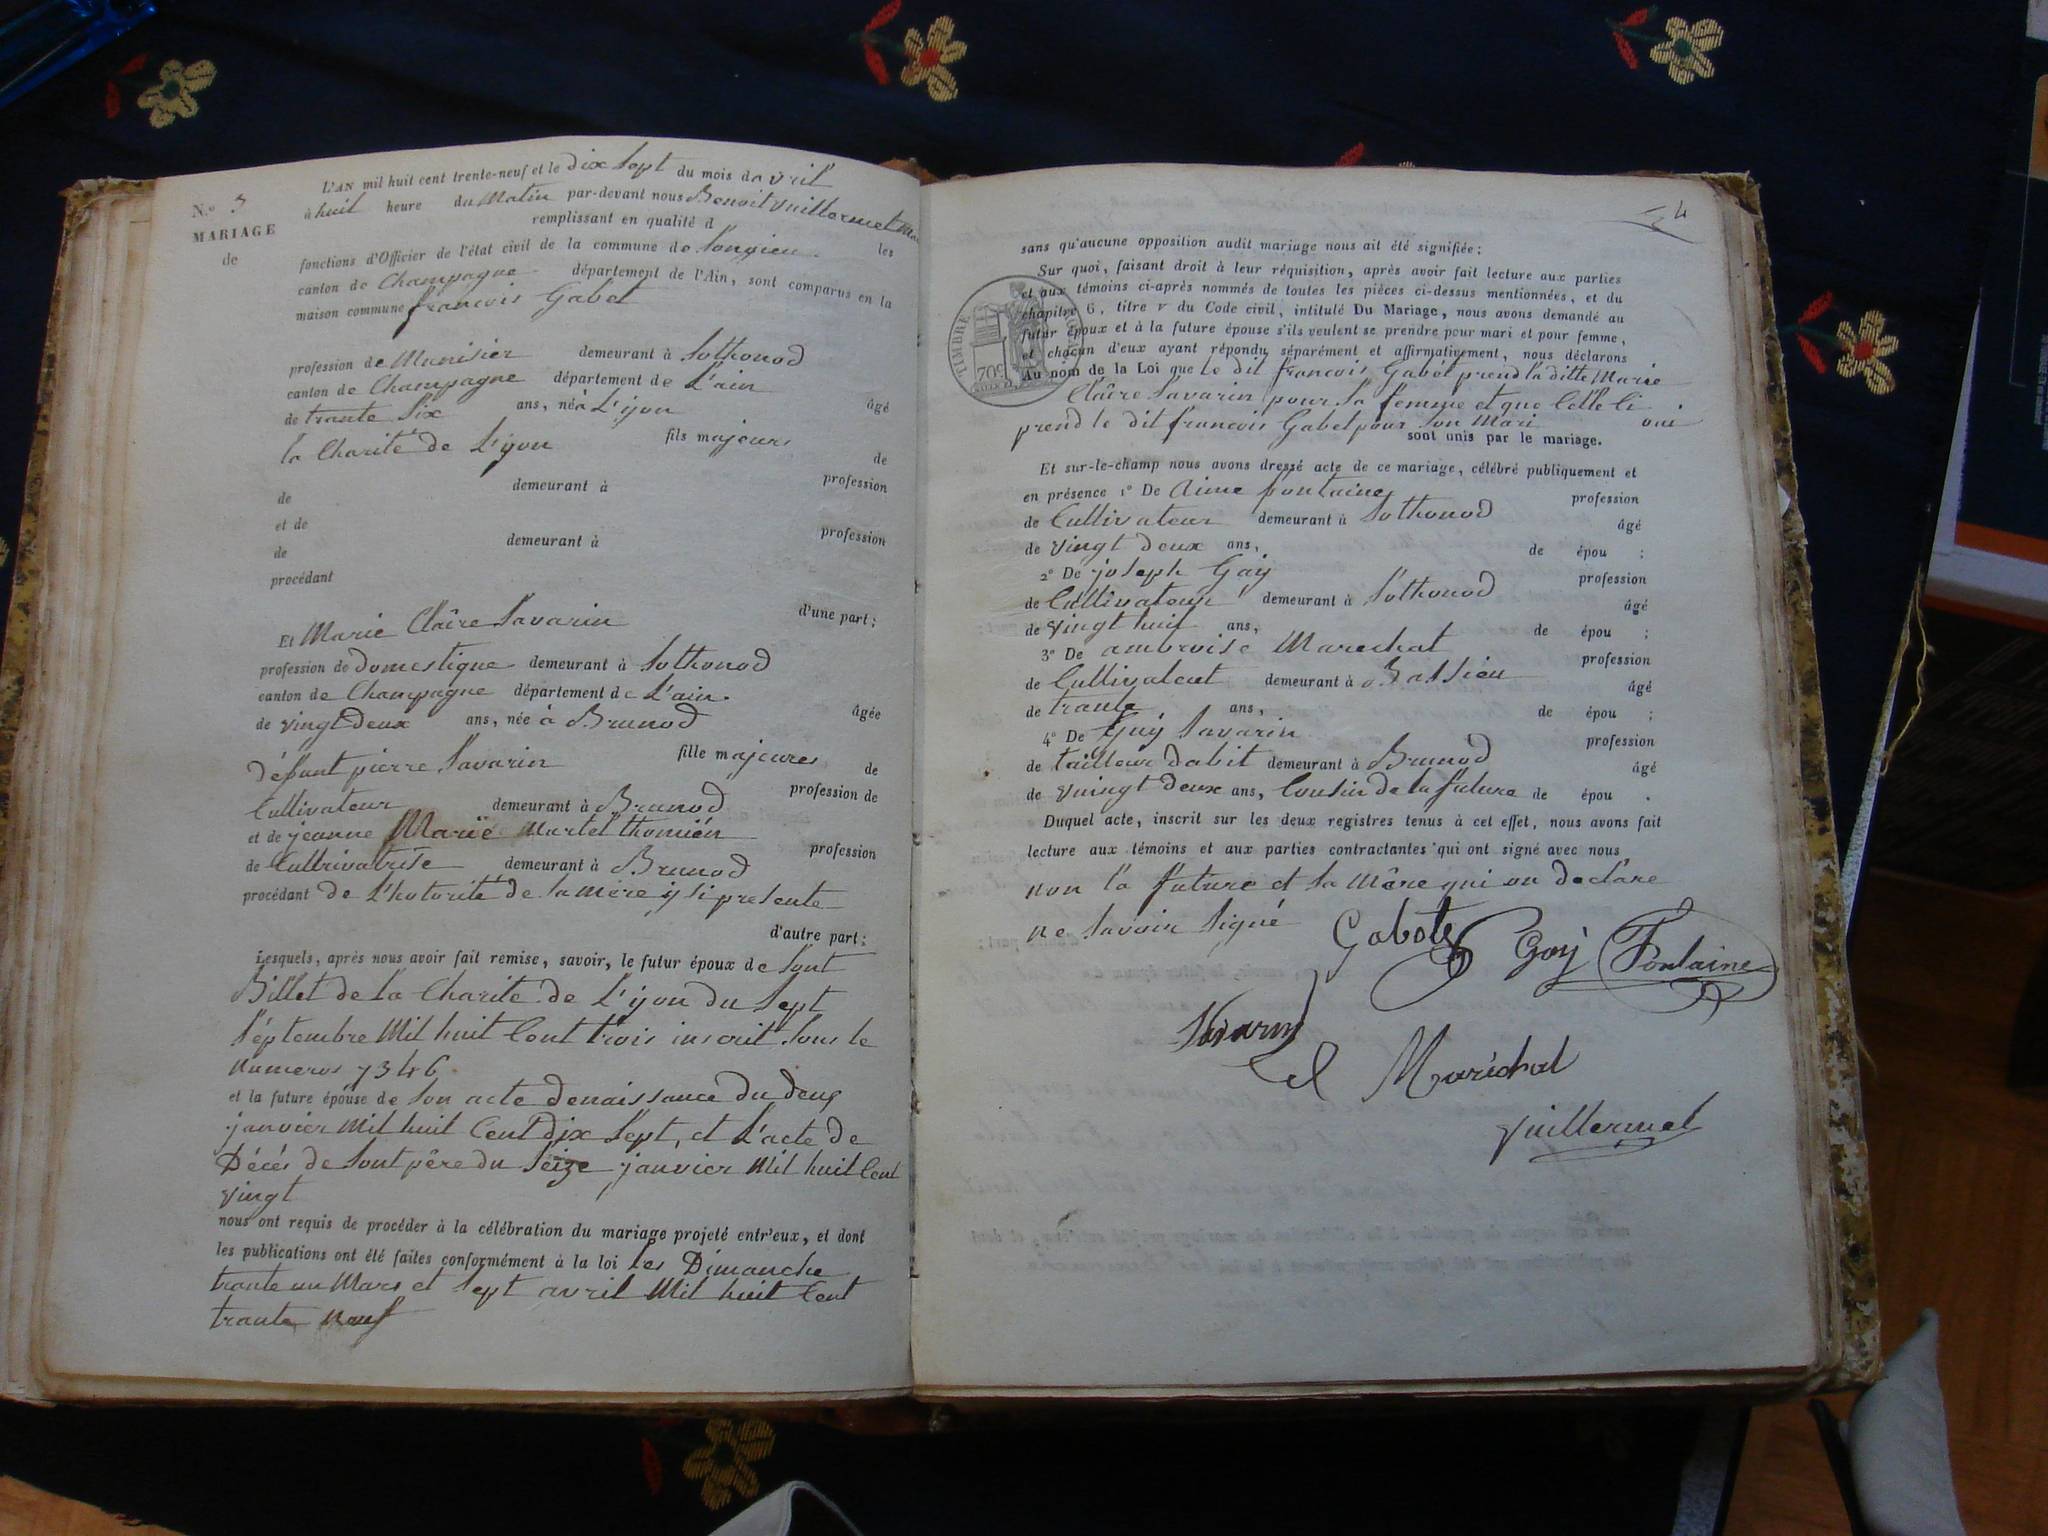 N.º 3
MARIAGE
de
L'AN mil huit cent trente-neuf et le dix sept du mois davril
à huit heure du Matin par-devant nous Benoit Vuillermet
remplissant en qualité d les
fonctions d'Officier de l'état civil de la commune de Songieu
canton de Champagne département de l'Ain, sont comparus en la
maison commune françois Gabet
profession de Menisier demeurant à Sothonod
canton de Champagne département de L'ain
âgé
de trante Six ans, né à L'ijon
fils majeurs de
la Charité de L'ijon
profession
de demeurant à
et de
profession
de demeurant à
procédant
d'une part;
Et Marie Clâire Savarin
profession de domestique demeurant à Sothonod
canton de Champagne département de L'ain.
âgée
de vingt deux ans, née à Brunod
fille majeures de
défunt pierre Savarin
profession de
Cultivateur demeurant à Brunod
et de jeanne Marie Martel thomién
profession
de Cultrivatrise demeurant à Brunod
procédant de L'hotorité de sa mére ij si presente
d'autre part;
Lesquels, après nous avoir fait remise, savoir, le futur époux de Sont
Billet de la Charité de L'ijon du Sept
Séptembre Mil huit Cent trois inscrit Sous le
numeros 7346
et la future épouse de Son acte denaissance du deux
janvier Mil huit Cent dix Sept, et L'acte de
Décés de Sont pêre du Séize janvier Mil huit Cent
vingt
nous ont requis de procéder à la célébration du mariage projeté entr'eux, et dont
les publications ont été faites conformément à la loi les Dimanche
trante un Mars et Sept avril Mil huit Cent
trante neuf
4
sans qu'aucune opposition audit mariage nous ait été signifiée;
Sur quoi, faisant droit à leur réquisition, après avoir fait lecture aux parties
et aux témoins ci-après nommés de toutes les pièces ci-dessus mentionnées, et du
chapitre 6, titre v du Code civil, intitulé Du Mariage, nous avons demandé au
futur époux et à la future épouse s'ils veulent se prendre pour mari et pour femme,
et chacun d'eux ayant répondu séparément et affirmativement, nous déclarons
Au nom de la Loi que le dit francois Gabet prend la ditte Marie
Clâire Savarin pour Sa femme et que Celle Ci
prend le dit francois Gabet pour Son Mari oui
sont unis par le mariage.
TIMBRE
70c
Et sur-le-champ nous avons dressé acte de ce mariage, célébré publiquement et
en présence 1º De Aime fontaine profession
de Cultivateur demeurant à Sothonod âgé
de vingt deux ans, de épou ;
2º De joseph Goij profession
de Cultivateur demeurant à Sothonod âgé
de vingt huit ans, de épou ;
3º De ambroise Marechat profession
de Cultivateut demeurant à Bassieu âgé
de trante ans, de épou ;
4º De Guij Savarin profession
de tailleur dabit demeurant à Brunod âgé
de vuingt deux ans, Cousin de la future de épou .
Duquel acte, inscrit sur les deux registres tenus à cet effet, nous avons fait
lecture aux témoins et aux parties contractantes qui ont signé avec nous
non la future et Sa Mêre qui on declâre
ne Savoir Signé
Gabote Goij Fontaine
Savarin
Maréchal
Vuillermet